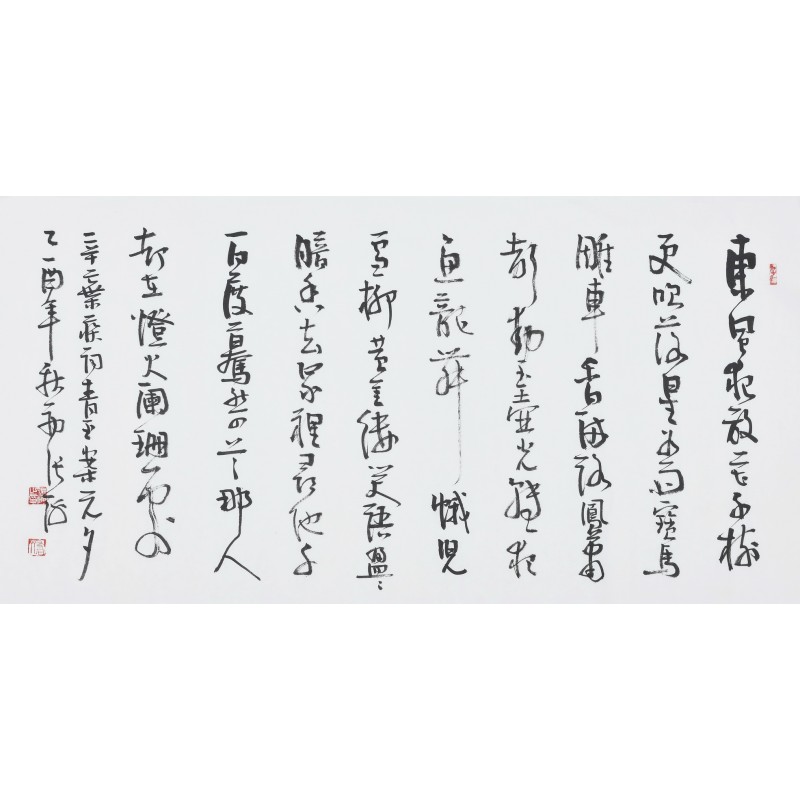 東風夜放花千樹
更吹落星如雨寶馬
雕車香滿路鳳簫
聲動玉壺光轉一夜
魚龍舞蛾兒
雪柳黃金縷笑語盈〻
暗香去眾裡尋他千
百度驀然回首那人
卻在燈火闌珊處
辛棄疾詞青玉案元夕
乙酉年秋